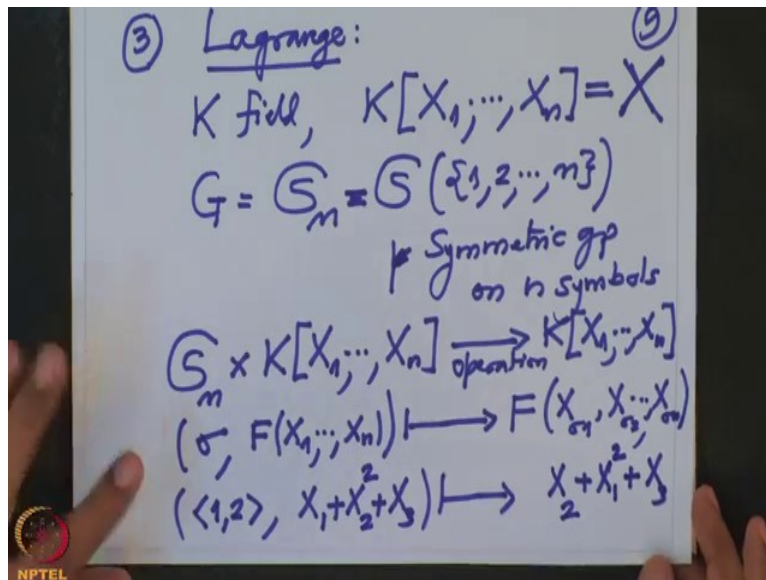 ③ Lagrange: ⑨
K field, K[X₁,…,Xₙ] = X
G = 𝔖ₙ = 𝔖({1,2,…,n})
Symmetric gp
on n symbols
𝔖ₙ × K[X₁,…,Xₙ] ⟶ operation K[X₁,…,Xₙ]
(σ, F(X₁,…,Xₙ)) ⟼ F(X_σ1, X_σ2,…,X_σn)
(<1,2>, X₁+X₂²+X₃) ⟼ X₂+X₁²+X₃
NPTEL